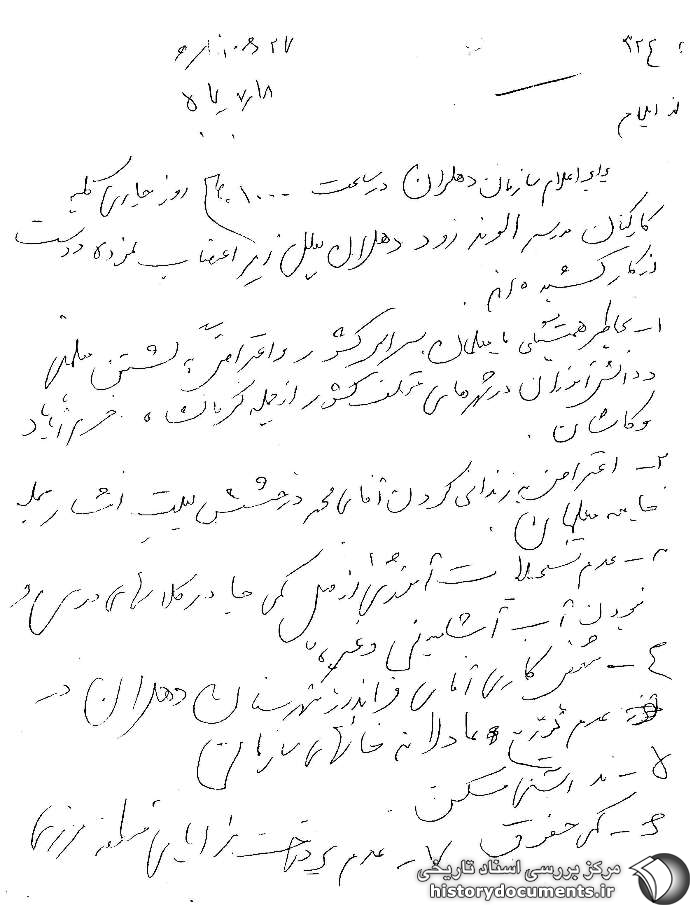 ۳۲۴
۵۷/۸/۱
از ایلام
برابر اعلام سازمان دهلران در ساعت ۱۰۰۰ روز جاری کلیه
کارکنان مدرسه الوند رود دهلران بعلل زیر اعتصاب نموده و دست
از کار کشیده‌اند.
۱- بخاطر همبستگی با معلمان سراسر کشور و اعتراض به کشتن معلمین
و دانش‌آموزان در شهرهای مختلف کشور از جمله کرمان، خرم‌آباد
و کاشان.
۲- اعتراض به زندانی کردن آقای محمد درخشش بعلت انتشار مجله
جامعه معلمان.
۳- عدم تسهیلات آموزشی از قبیل کمی جا در کلاسهای درس و
نبودن آب آشامیدنی و غیره
۴- آقای فرماندار شهرستان دهلران در
عدم عادلانه خانه‌های سازمانی
۵- نداشتن مسکن
۶- کمی حقوق ۷- عدم پرداخت مزایای منطقه مرزی
مرکز بررسی اسناد تاریخی
historydocuments.ir